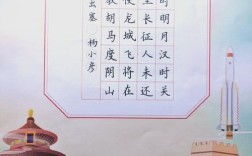 时明月汉时关
里长征人未还
使龙城飞将在
教胡马度阴山
出塞 杨小彦